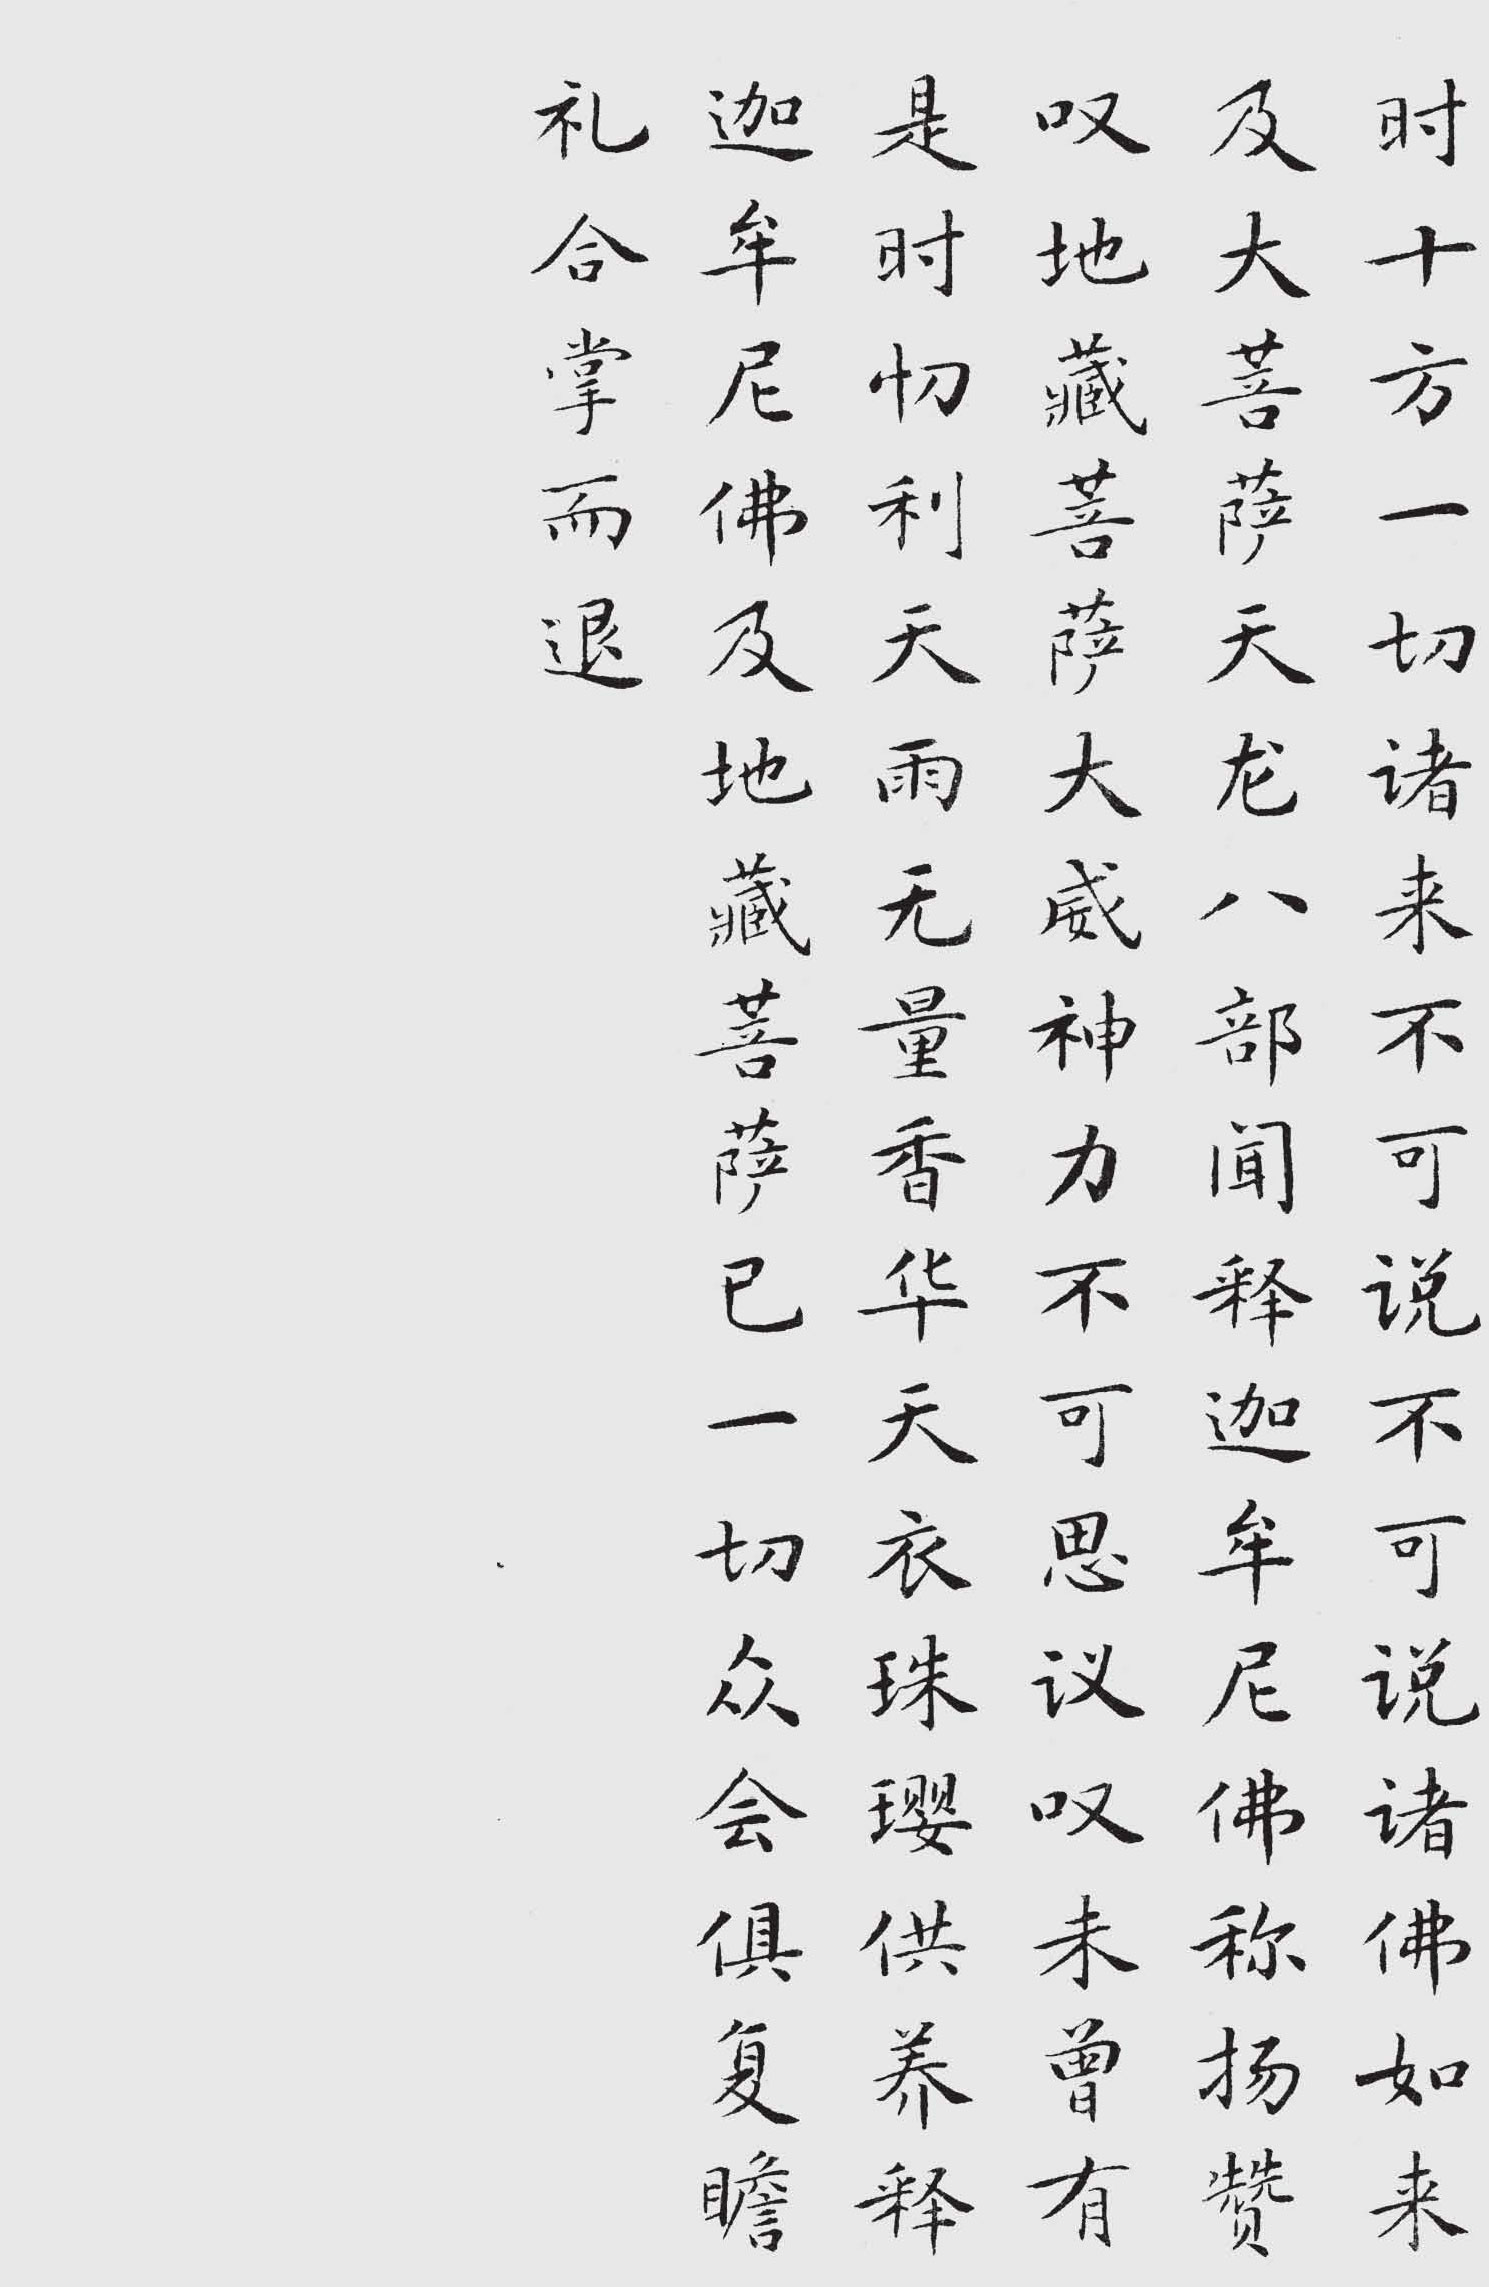 时十方一切诸来不可说不可说诸佛如来
及大菩萨天龙八部闻释迦牟尼佛称扬赞
叹地藏菩萨大威神力不可思议叹未曾有
是时忉利天雨无量香华天衣珠璎供养释
迦牟尼佛及地藏菩萨已一切众会俱复瞻
礼合掌而退